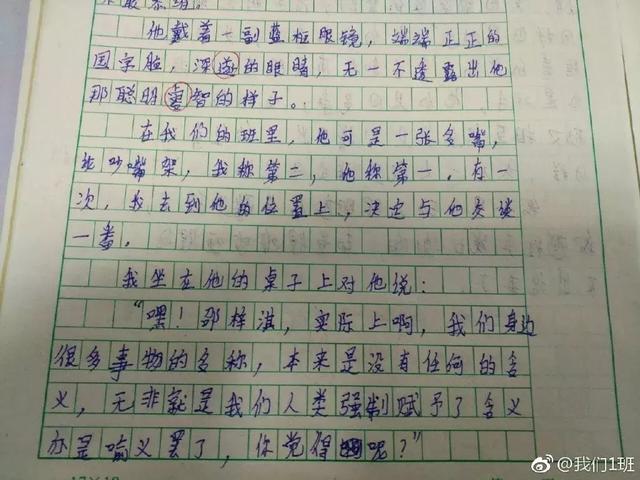 他戴着一副蓝框眼镜，端端正正的
国字脸，深邃的眼睛，无一不透露出他
那聪明睿智的样子。
在我们的班里，他可是一张名嘴，
论吵嘴架，我称第二，他称第一，有一
次，我去到他的位置上，决定与他交谈
一番，
我坐在他的桌子上对他说：
“嘿！邵梓淇，实际上啊，我们身边
很多事物的名称，本来是没有任何的含
义，无非就是我们人类强制赋予了含义
亦是喻义罢了，你觉得呢？”
@我们1班